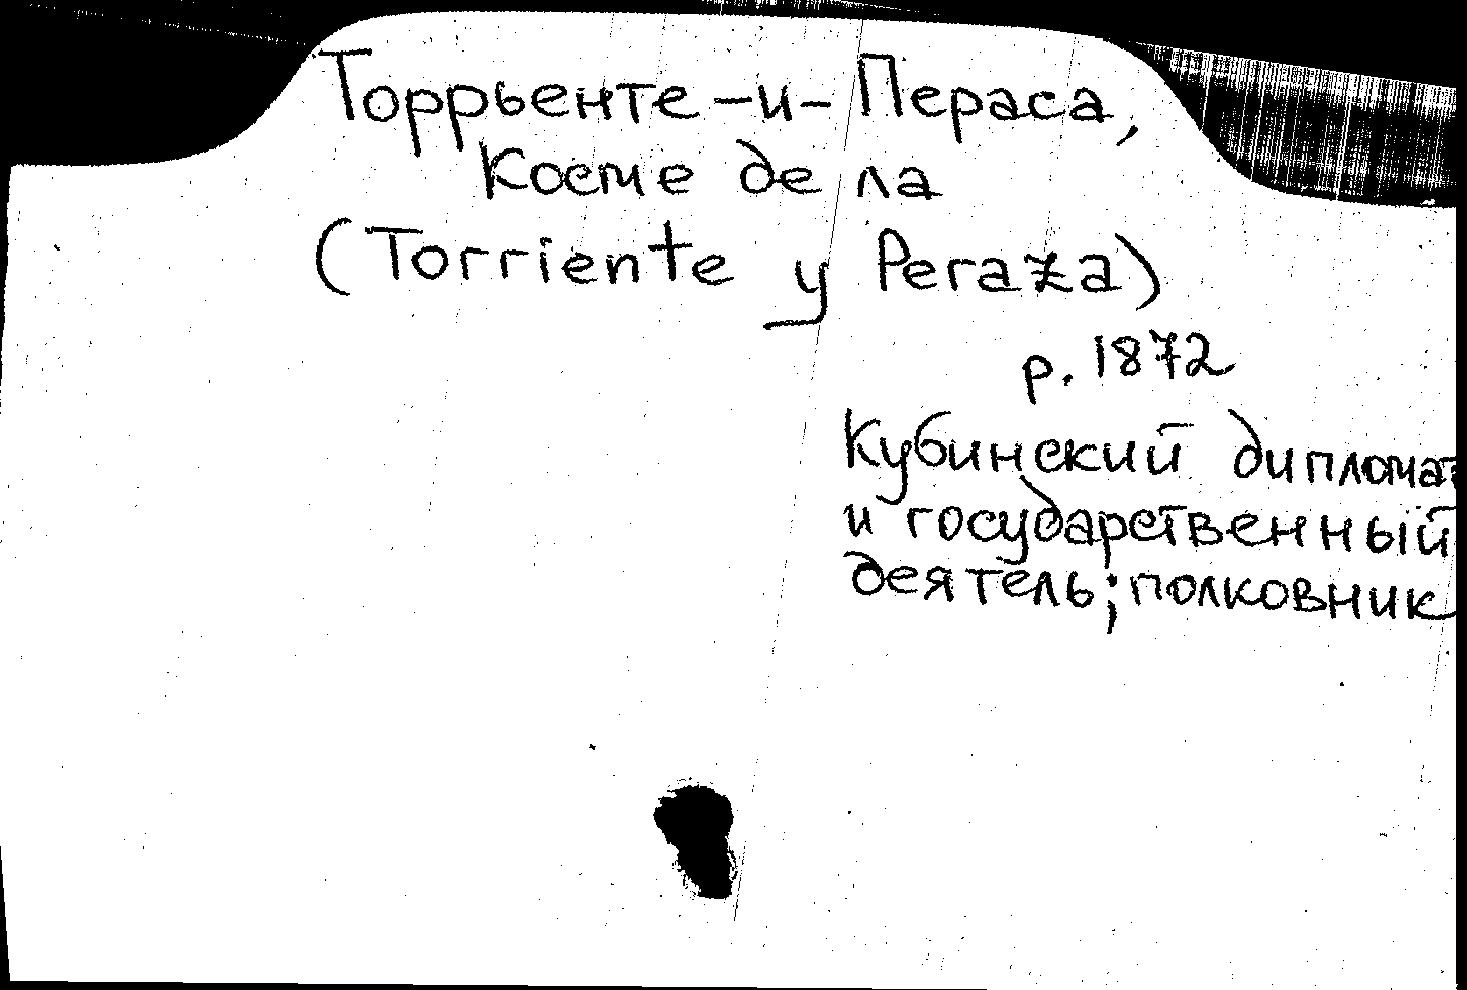 Торрьенте-и-Пераса,
Косме де ла
(Torriente y Peraza)
р. 1872
Кубинский дипломат
и государственный
деятель; полковник